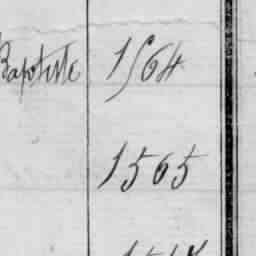 Baptiste 1564
1565